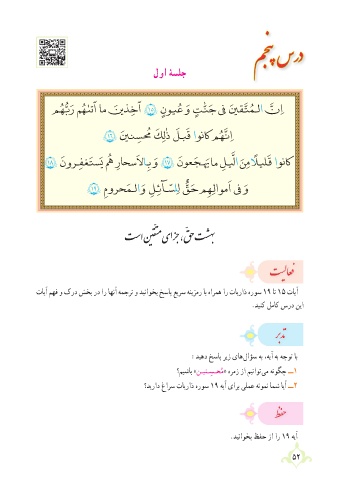 درس پنجم
جلسهٔ اول
اِنَّ المُتَّقینَ فی جَنّٰتٍ وَ عُیونٍ ۱۵ آخِذینَ ما آتٰىهُم رَبُّهُم
اِنَّهُم کانوا قَبلَ ذٰلِکَ مُحسِنینَ ۱۶
کانوا قَلیلًا مِنَ الَّیلِ ما یَهجَعونَ ۱۷ وَ بِالاَسحارِ هُم یَستَغفِرونَ ۱۸
وَ فی اَموالِهِم حَقٌّ لِلسّآئِلِ وَ المَحرومِ ۱۹
بهشت حق، جزای متقین است
فعالیت
آیات ۱۵ تا ۱۹ سوره ذاریات را همراه با هم‌زینه سریع پاسخ بخوانید و ترجمه آنها را در بخش درک و فهم آیات
این درس کامل کنید.
تدبّر
با توجه به آیه، به سؤال‌های زیر پاسخ دهید :
۱ــ چگونه می‌توانیم از زمره «مُحسِنین» باشیم؟
۲ــ آیا شما نمونه عملی برای آیه ۱۹ سوره ذاریات سراغ دارید؟
حفظ
آیه ۱۹ را از حفظ بخوانید.
۵۲